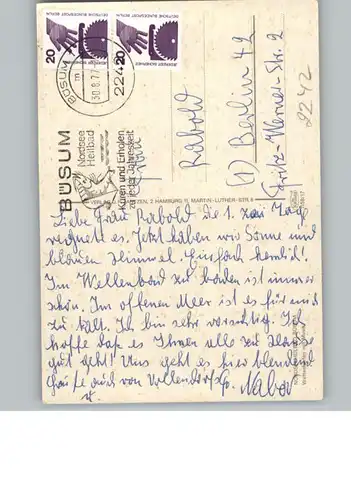 20
20
DEUTSCHE BUNDESPOST BERLIN
DEUTSCHE BUNDESPOST BERLIN
JEDERZEIT SICHERHEIT
JEDERZEIT SICHERHEIT
BÜSUM
30.8.77
2242
BÜSUM
Nordsee
Heilbad
Kuren und Erholen
zu jeder Jahreszeit
Rabold
(1) Berlin 42
Fritz-Werner-Str. 2
2242
2 HAMBURG 11, MARTIN-LUTHER-STR.
Liebe Frau Rabold die 1. zwei Tage
regnete es. Jetzt haben wir Sonne und
blauen Himmel. Einfach herrlich!
Im Wellenbad zu baden ist immer
schön. Im offenen Meer ist es für mich
zu kalt. Ich bin sehr vorsichtig. Ich
hoffe daß es Ihnen allen zu Hause
gut geht! Uns geht es hier blendend
Grüße auch von